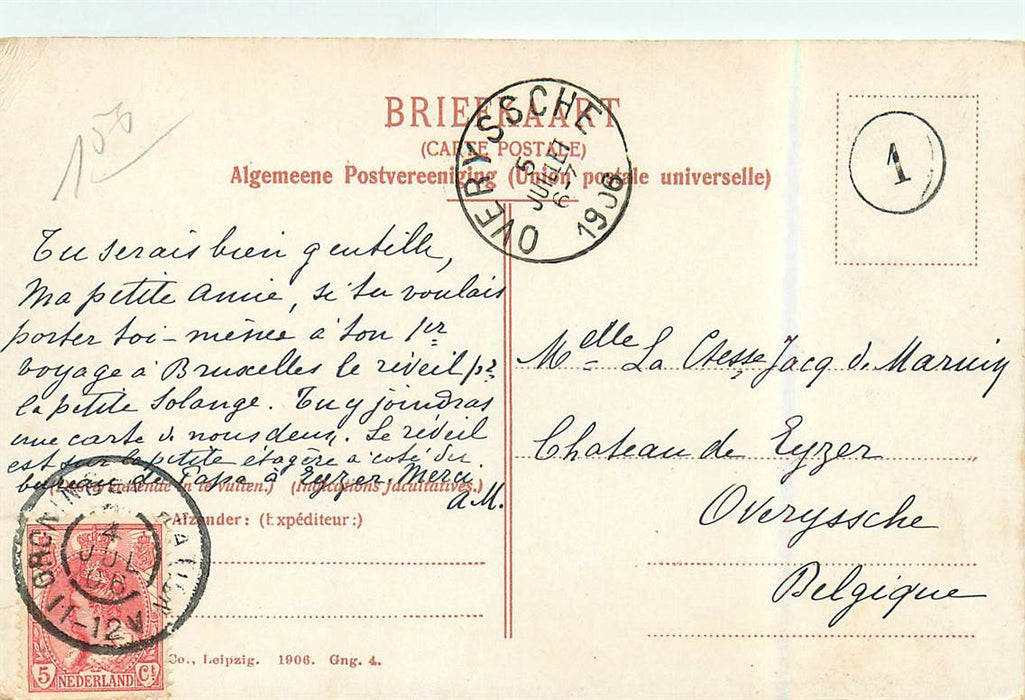 156
BRIEFKAART
(CARTE POSTALE)
Algemeene Postvereeniging (Union postale universelle)
OVERYSSCHE
5
JUILLET
6-7
1906
1
Tu serais bien gentille,
Ma petite Amie, si tu voulais
porter toi-même à ton 1er
voyage à Bruxelles le réveil pr
la petite Solange. Tu y joindras
une carte de nous deux. Le réveil
est sur la petite étagère à côté du
bureau de Papa à Eyzer. Merci
A.M.
Melle La Ctesse Jacq d. Marnix
Chateau de Eyzer
Overyssche
Belgique
in te vullen.) (Indications facultatives.)
Afzender: (Expéditeur:)
GRONINGEN STATION
4
JUL
06
11-12V
5 Ct
NEDERLAND
Co., Leipzig. 1906. Gng. 4.